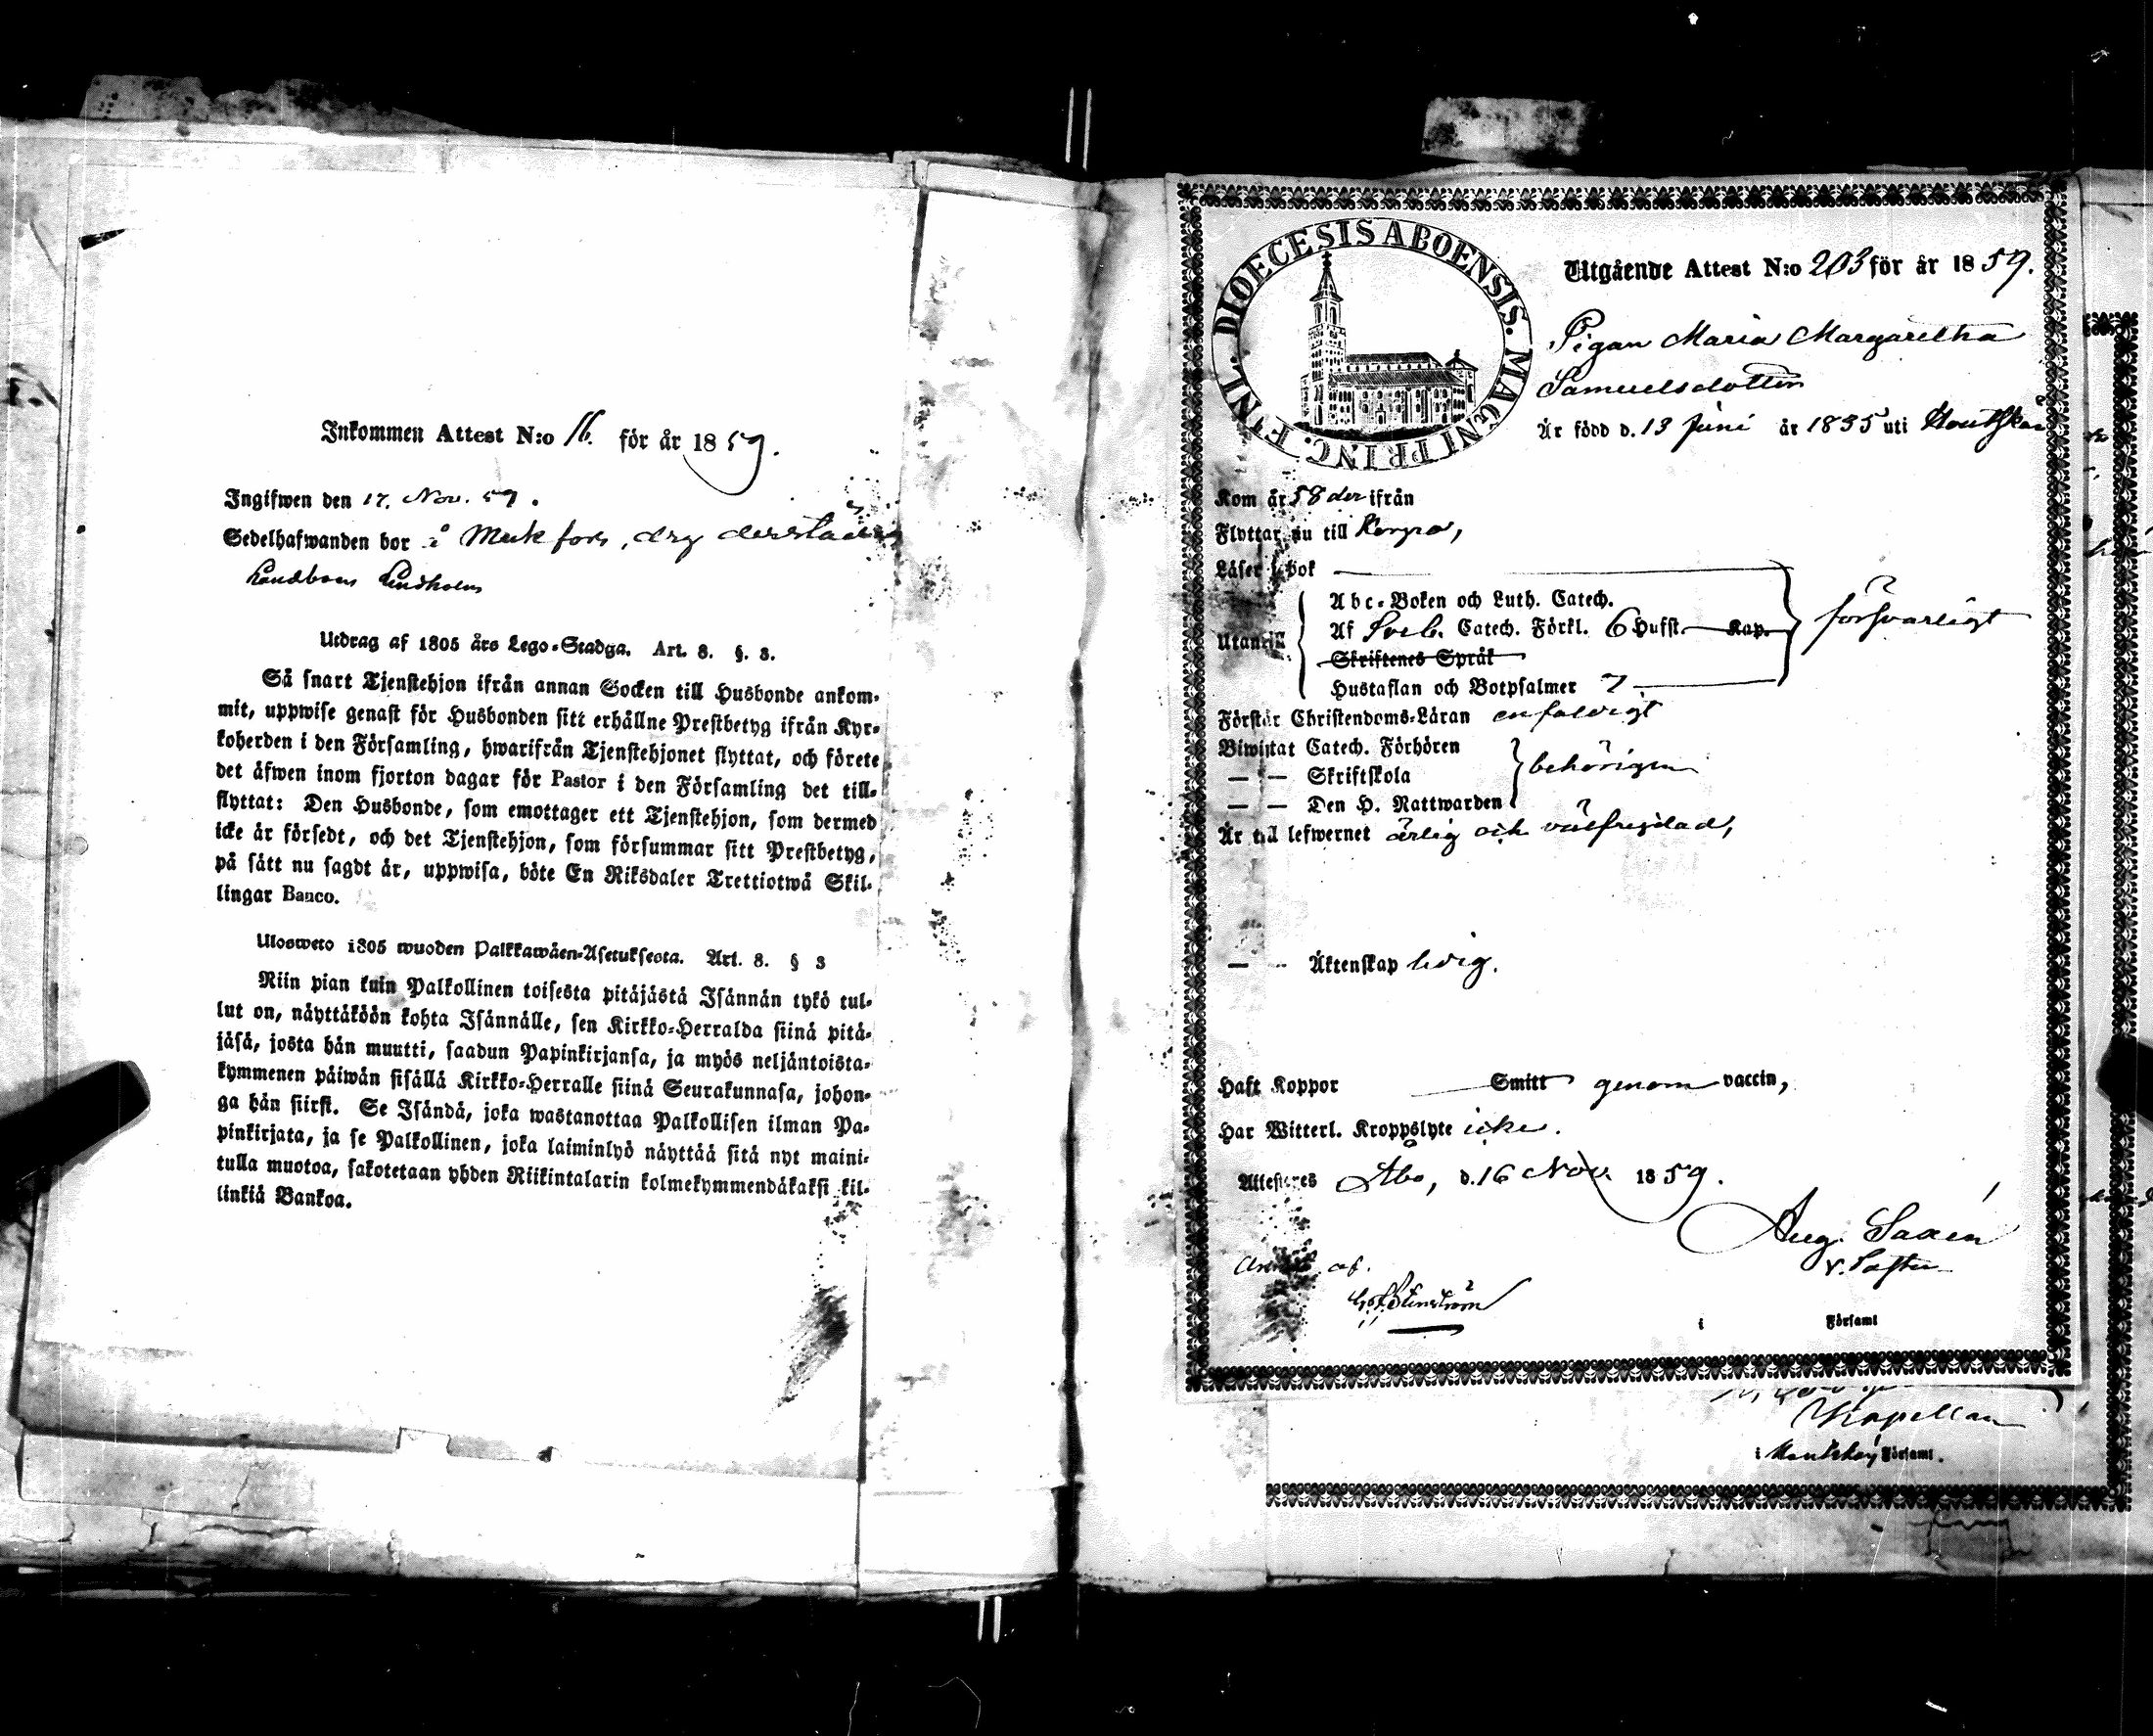 Inkommen Attest N:o 16. för år 1859.
Ingifwen den 17. Nov. 59.
Sedelhafwanden bor å
Utdrag af 1805 års Lego-Stadga. Art. 8. §. 3.
Så snart Tjenstehjon ifrån annan Socken till Husbonde ankom-
mit, uppwise genast för Husbonden sitt erhållne Prestbetyg ifrån Kyr-
koherden i den Församling, hwarifrån Tjenstehjonet flyttat, och förete
det äfwen inom fjorton dagar för Pastor i den Församling det till-
flyttat: Den Husbonde, som emottager ett Tjenstehjon, som dermed
icke är försedt, och det Tjenstehjon, som försummar sitt Prestbetyg,
på sätt nu sagdt är, uppwisa, böte En Riksdaler Trettiotwå Skil-
lingar Banco.
Ulosweto 1805 wuoden Palkkawäen-Asetuksesta. Art. 8. § 3
Niin pian kuin Palkollinen toisesta pitäjästä Isännän tykö tul-
lut on, näyttäköön kohta Isännälle, sen Kirkko-Herralda siinä pitä-
jäsä, josta hän muutti, saadun Papinkirjansa, ja myös neljäntoista-
kymmenen päiwän sisällä Kirkko-Herralle siinä Seurakunnasa, johon-
ga hän siirst. Se Isändä, joka wastanottaa Palkollisen ilman Pa-
pinkirjata, ja se Palkollinen, joka laiminlyö näyttää sitä nyt maini-
tulla muotoa, sakotetaan yhden Riikintalarin kolmekymmendäkaksi kil-
linkiä Bankoa.
FINL. DIOECESIS ABOENSIS. MAGNI PRINC.
Utgående Attest N:o 203 för år 1859.
Pigan Maria Margaretha
Samuelsdotter
Är född d. 13 Juni år 1835 uti Houtskär
Kom år 58 der ifrån
Flyttar nu till Korpo,
Läser i bok
Abc-Boken och Luth. Catech.
Utantill Af Sveb. Catech. Förkl. 6 Hufst. Kap. försvarligt
Skriftenes Språk
Hustaflan och Botpsalmer 7
Förstår Christendoms-Läran enfaldigt
Biwistat Catech. Förhören
— — Skriftskola behörigen
— — Den H. Nattwarden
Är till lefwernet ärlig och välfrejdad,
— — Äktenskap ledig.
Haft Koppor Smitt genom vaccin,
Har Witterl. Kroppslyte icke.
Attesteres Åbo, d. 16 Nov. 1859.
Aug. Saxén
v. Pastor
af.
i Församl
Kapellan
i Houtskär Församl.